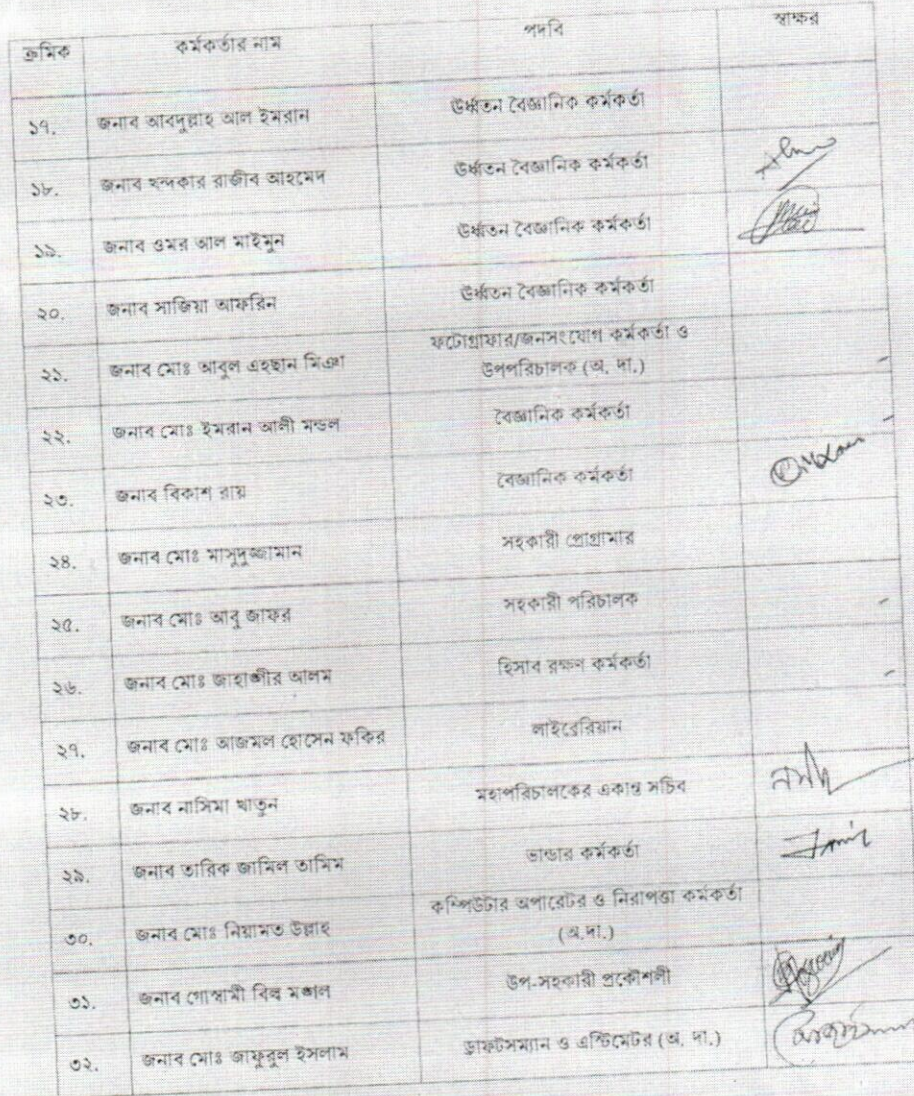 ক্রমিক কর্মকর্তার নাম পদবি স্বাক্ষর
১৭. জনাব আবদুল্লাহ আল ইমরান ঊর্ধ্বতন বৈজ্ঞানিক কর্মকর্তা
১৮. জনাব খন্দকার রাজীব আহমেদ ঊর্ধ্বতন বৈজ্ঞানিক কর্মকর্তা
১৯. জনাব ওমর আল মাইমুন ঊর্ধ্বতন বৈজ্ঞানিক কর্মকর্তা
২০. জনাব সাজিয়া আফরিন ঊর্ধ্বতন বৈজ্ঞানিক কর্মকর্তা
২১. জনাব মোঃ আবুল এহছান মিঞা ফটোগ্রাফার/জনসংযোগ কর্মকর্তা ও
উপপরিচালক (অ. দা.)
২২. জনাব মোঃ ইমরান আলী মন্ডল বৈজ্ঞানিক কর্মকর্তা
২৩. জনাব বিকাশ রায় বৈজ্ঞানিক কর্মকর্তা
২৪. জনাব মোঃ মাসুদুজ্জামান সহকারী প্রোগ্রামার
২৫. জনাব মোঃ আবু জাফর সহকারী পরিচালক
২৬. জনাব মোঃ জাহাঙ্গীর আলম হিসাব রক্ষণ কর্মকর্তা
২৭. জনাব মোঃ আজমল হোসেন ফকির লাইব্রেরিয়ান
২৮. জনাব নাসিমা খাতুন মহাপরিচালকের একান্ত সচিব
২৯. জনাব তারিক জামিল তামিম ভান্ডার কর্মকর্তা
৩০. জনাব মোঃ নিয়ামত উল্লাহ কম্পিউটার অপারেটর ও নিরাপত্তা কর্মকর্তা
(অ.দা.)
৩১. জনাব গোস্বামী বিল্ব মঙ্গল উপ-সহকারী প্রকৌশলী
৩২. জনাব মোঃ জাফুরুল ইসলাম ড্রাফটসম্যান ও এস্টিমেটর (অ. দা.)